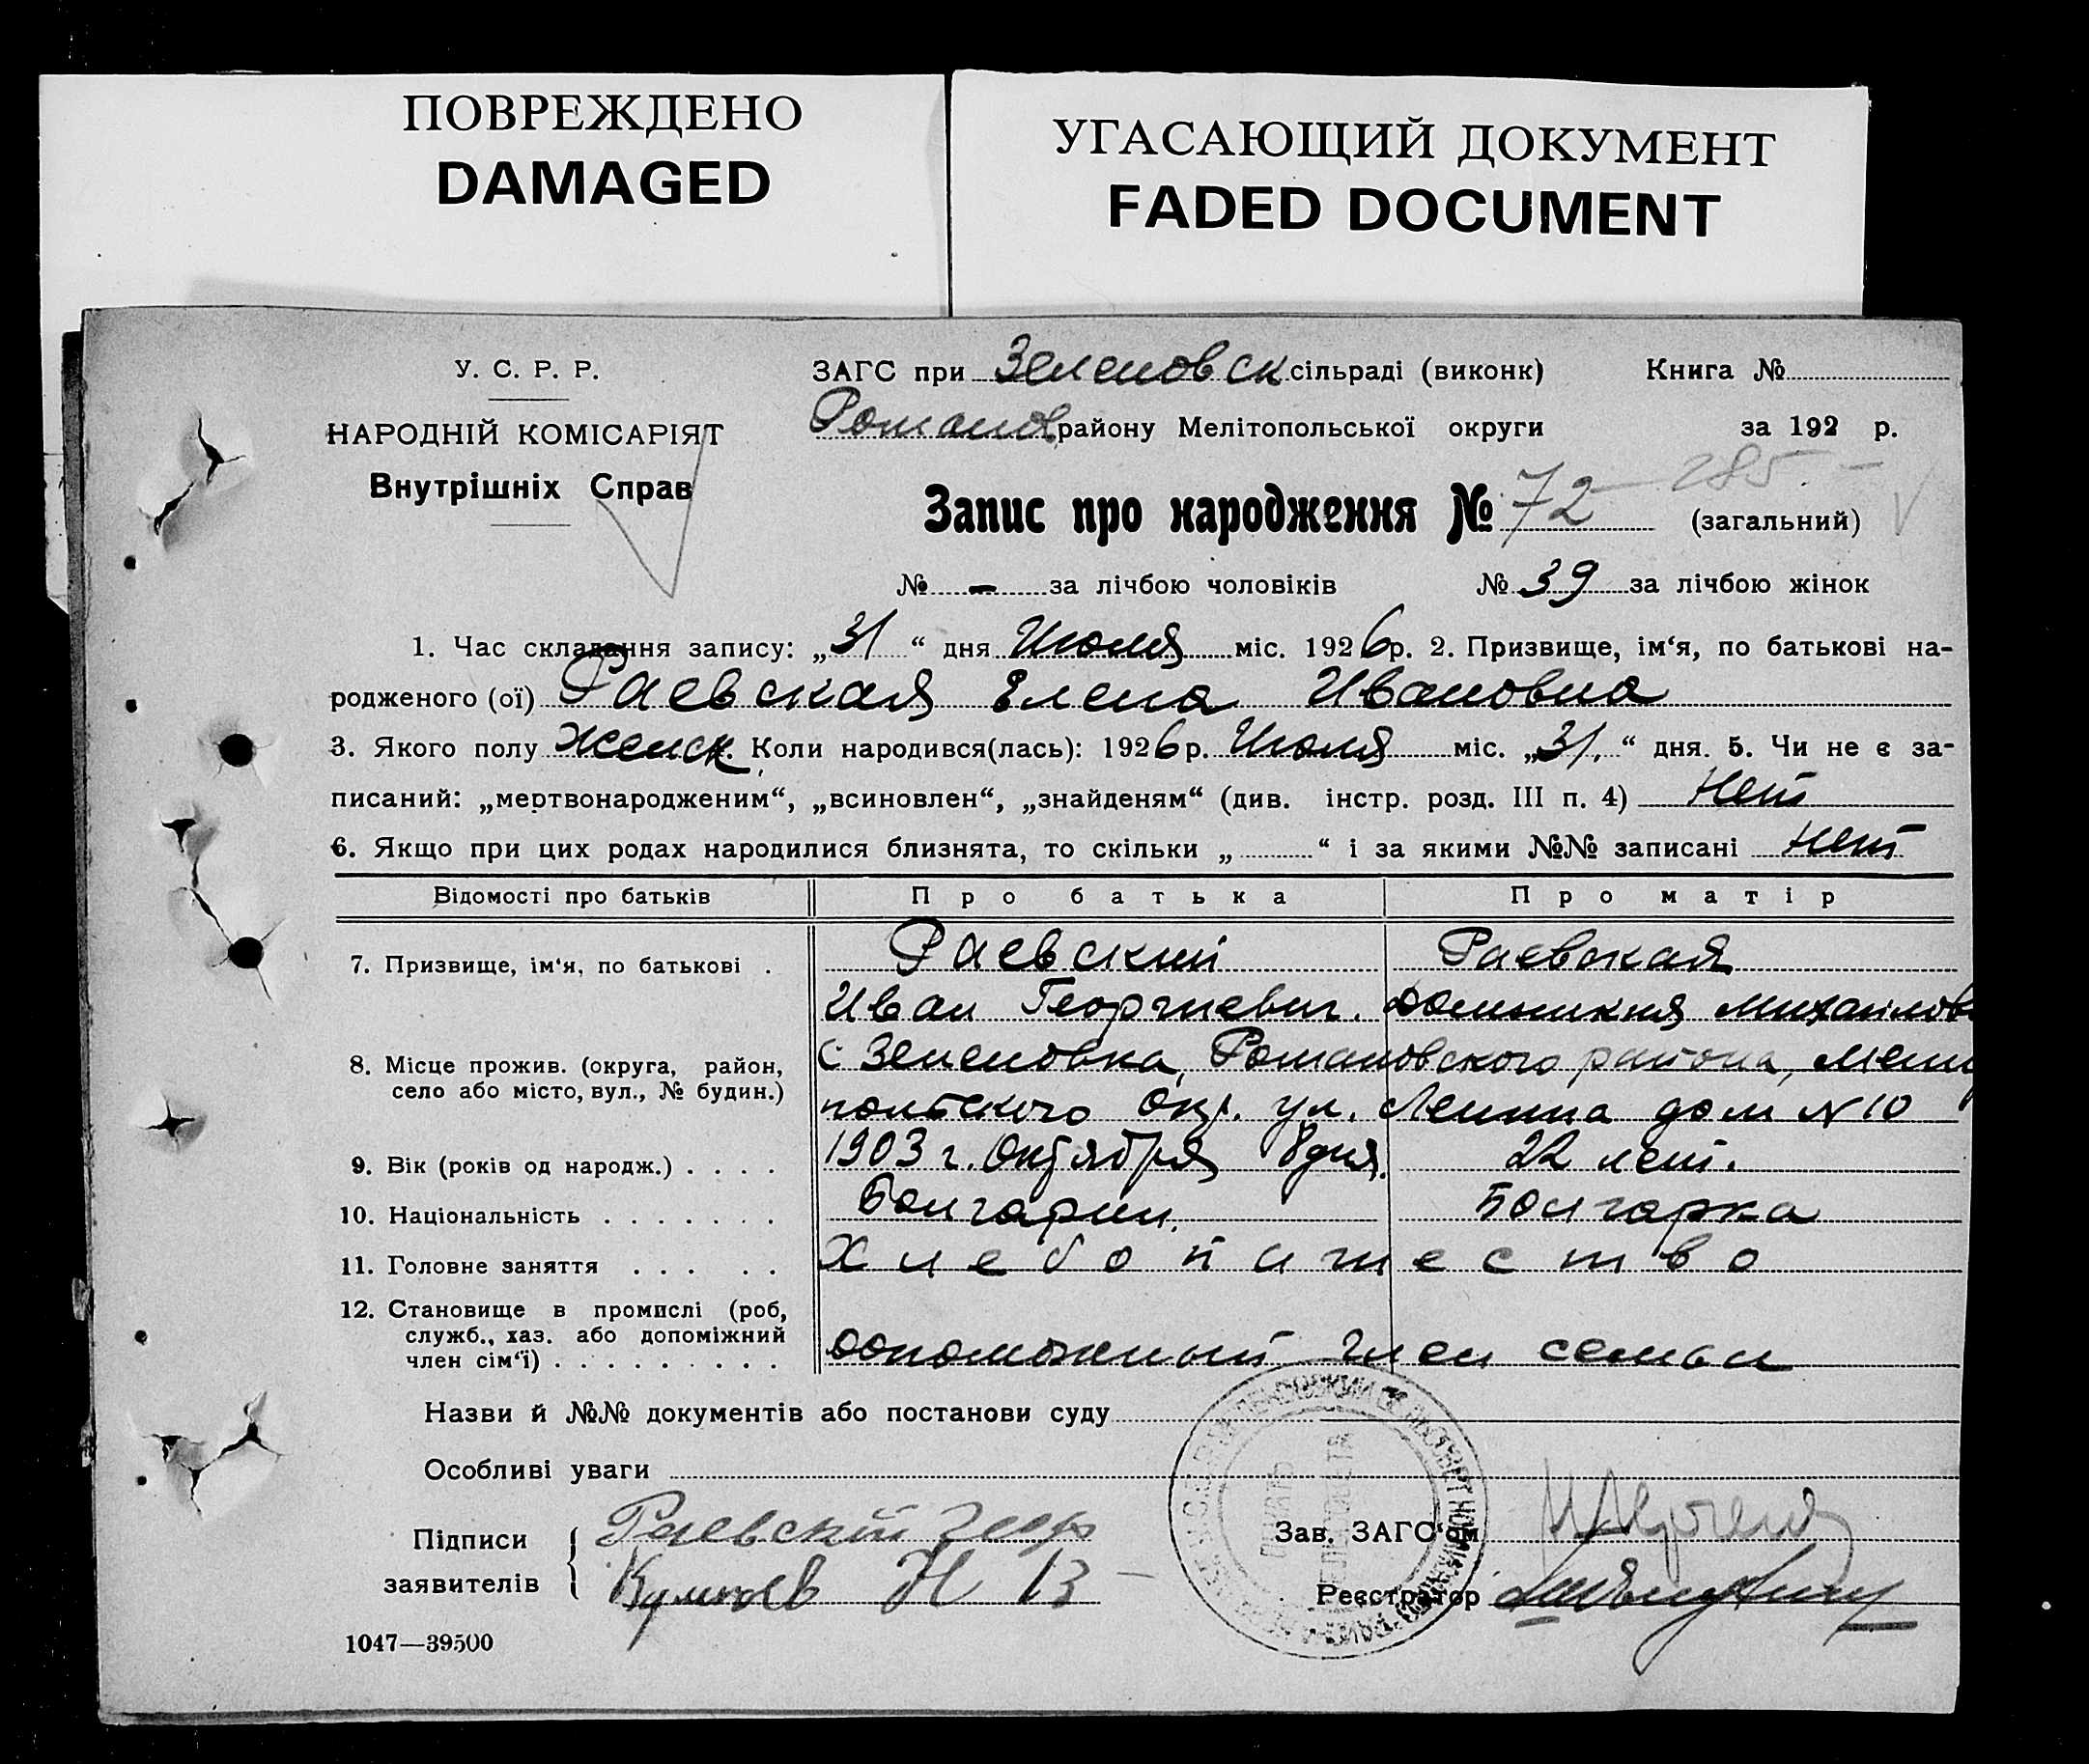 ПОВРЕЖДЕНО
DAMAGED
УГАСАЮЩИЙ ДОКУМЕНТ
FADED DOCUMENT
У. С. Р. Р.
НАРОДНІЙ КОМІСАРІЯТ
Внутрішніх Справ
ЗАГС при Зеленовск сільраді (виконк) Книга №
Романов району Мелітопольської округи за 192 р.
Запис про народження № 72 285 (загальний)
№ - за лічбою чоловіків № 39 за лічбою жінок
1. Час складання запису: „31“ дня Июля міс. 1926р. 2. Призвище, ім‘я, по батькові на-
родженого (ої) Раевская Елена Ивановна
3. Якого полу Женск. Коли народився(лась): 1926р. Июля міс. „31.“ дня. 5. Чи не є за-
писаний: „мертвонародженим“, „всиновлен“, „знайденям“ (див. інстр. розд. III п. 4) Нет
6. Якщо при цих родах народилися близнята, то скільки „ “ і за якими №№ записані Нет
Відомості про батьків Про батька Про матір
7. Призвище, ім‘я, по батькові . Раевский Раевская
Иван Георгиевич. Домникия Михайлов
8. Місце прожив. (округа, район, с Зеленовка, Романовского района, Мели
село або місто, вул., № будин.) польского окр. ул. Ленина дом № 10
9. Вік (років од народж.) . . . . 1903 г. Октября 8 дня. 22 лет.
10. Національність . . . . . . . Болгарин. Болгарка
11. Головне заняття . . . . . Хлебопашество
12. Становище в промислі (роб,
служб., хаз. або допоміжний
член сім‘ї) . . . . . . . . . допоможный член семьи
Назви й №№ документів або постанови суду
Особливі уваги
Підписи Раевский Геор Зав. ЗАГС‘ом
заявителів Н В Реєстратор
1047—39500